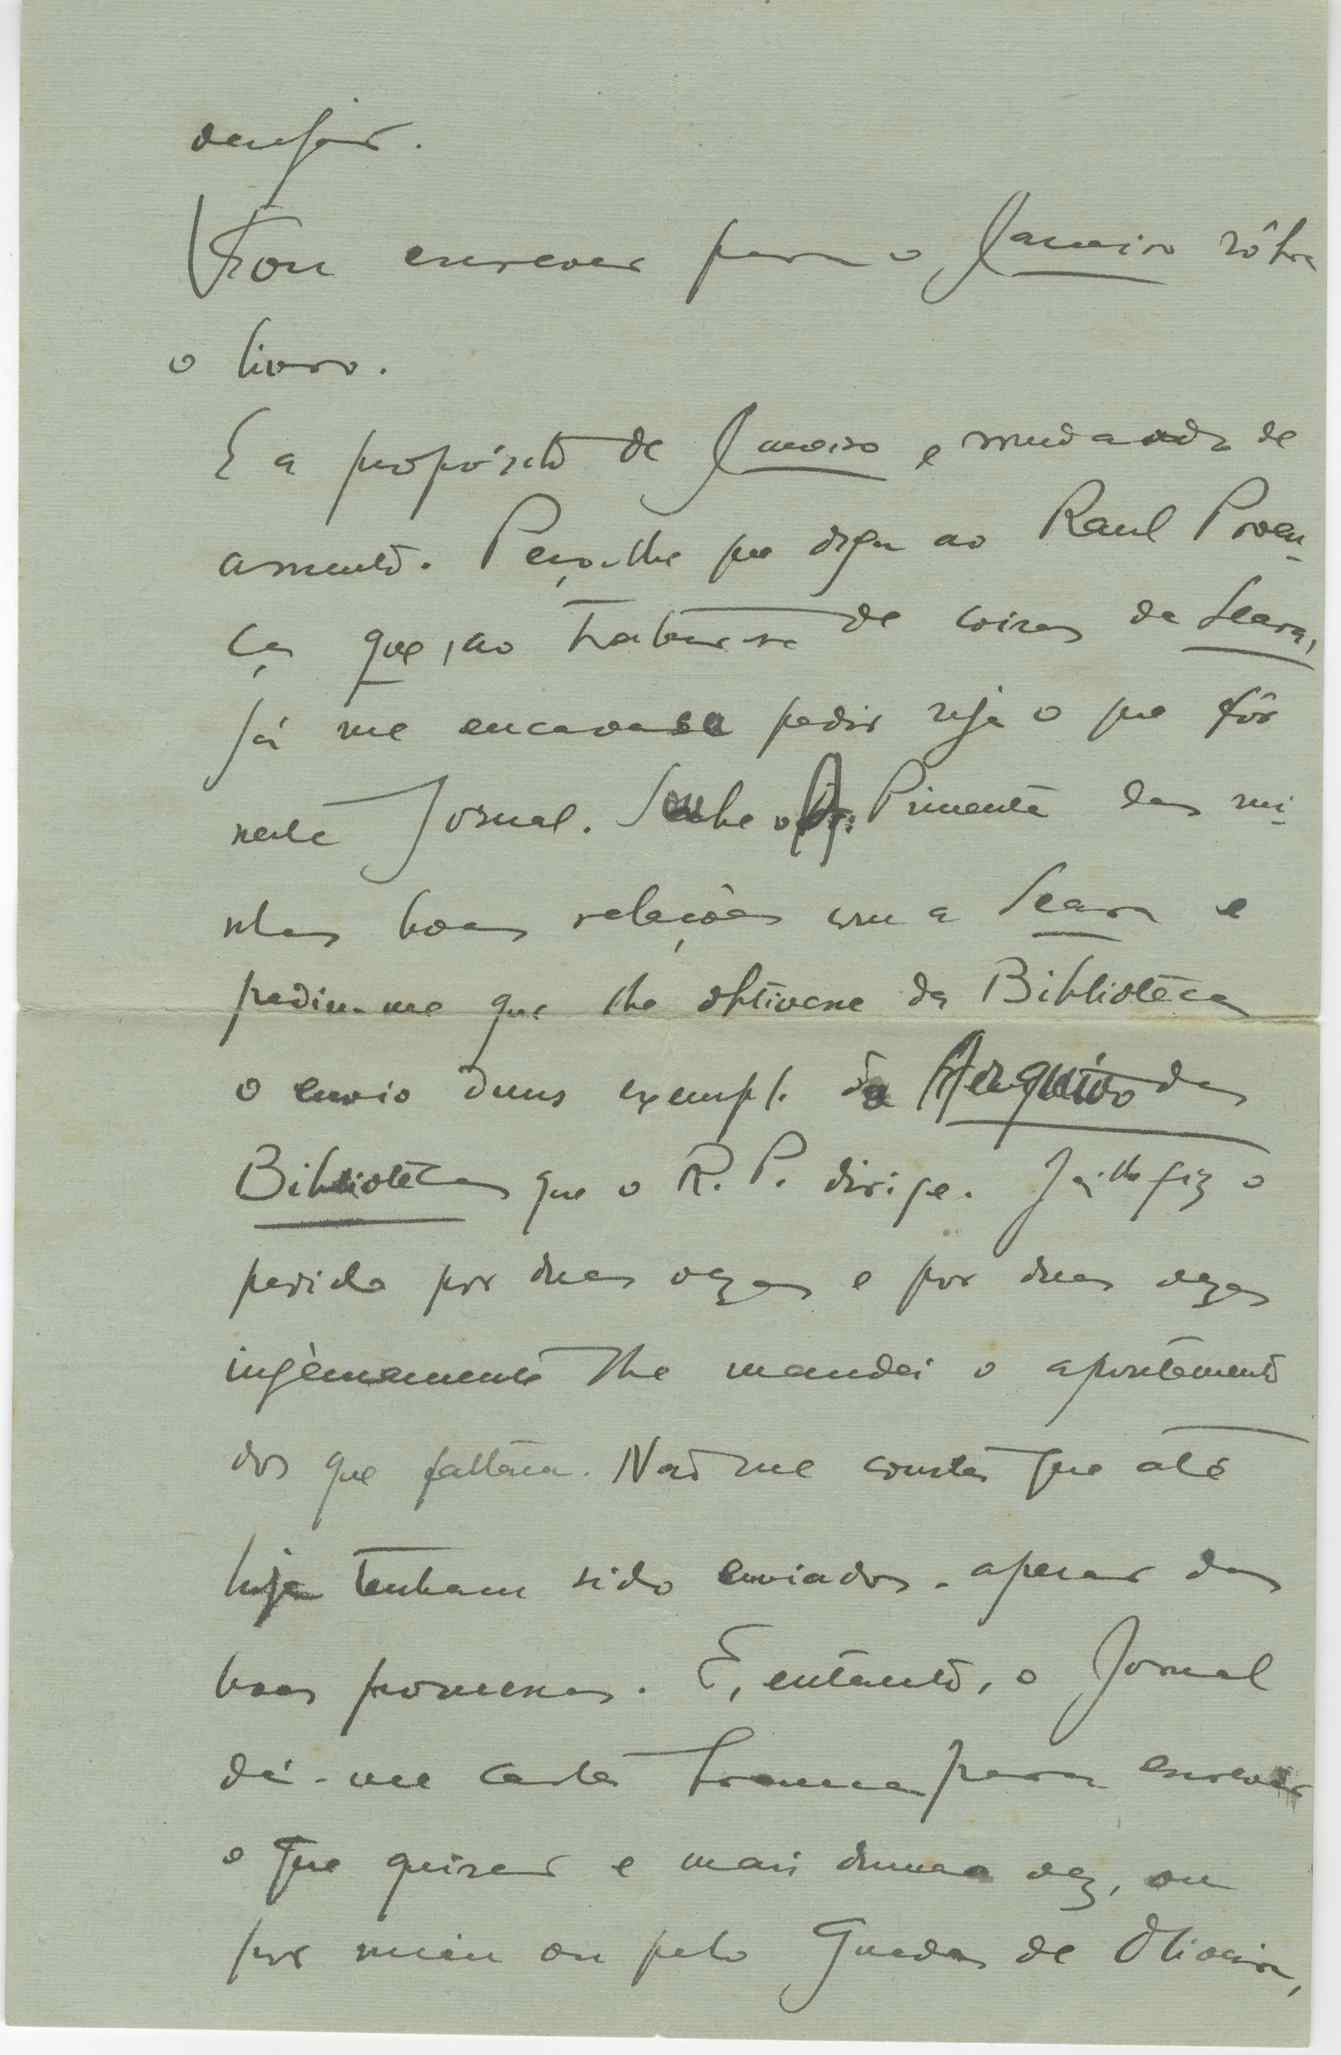 desejar.
Vou escrever para o Janeiro sôbre
o livro.
E a propósito de Janeiro e mudando de
assunto. Peço-lhe que diga ao Raul Proen-
ça que, ao tratar-se de coisas da Seara,
já me encavaca pedir seja o que fôr
neste Jornal. Sabe o Pimenta das mi-
nhas boas relações com a Seara e
pediu-me que lhe obtivesse da Biblioteca
o envio duns exempl. do Arquivo das
Bibliotecas que o R. P. dirige. Já lhe fiz o
pedido por duas vezes e por duas vezes
ingènuamente lhe mandei o apontamento
dos que faltam. Não me consta que até
hoje tenham sido enviados, apesar das
boas promessas. E, entanto, o Jornal
dá-me carta branca para escrever
o que quiser e mais duma vez, ou
por mim ou pelo Guedes de Oliveira,